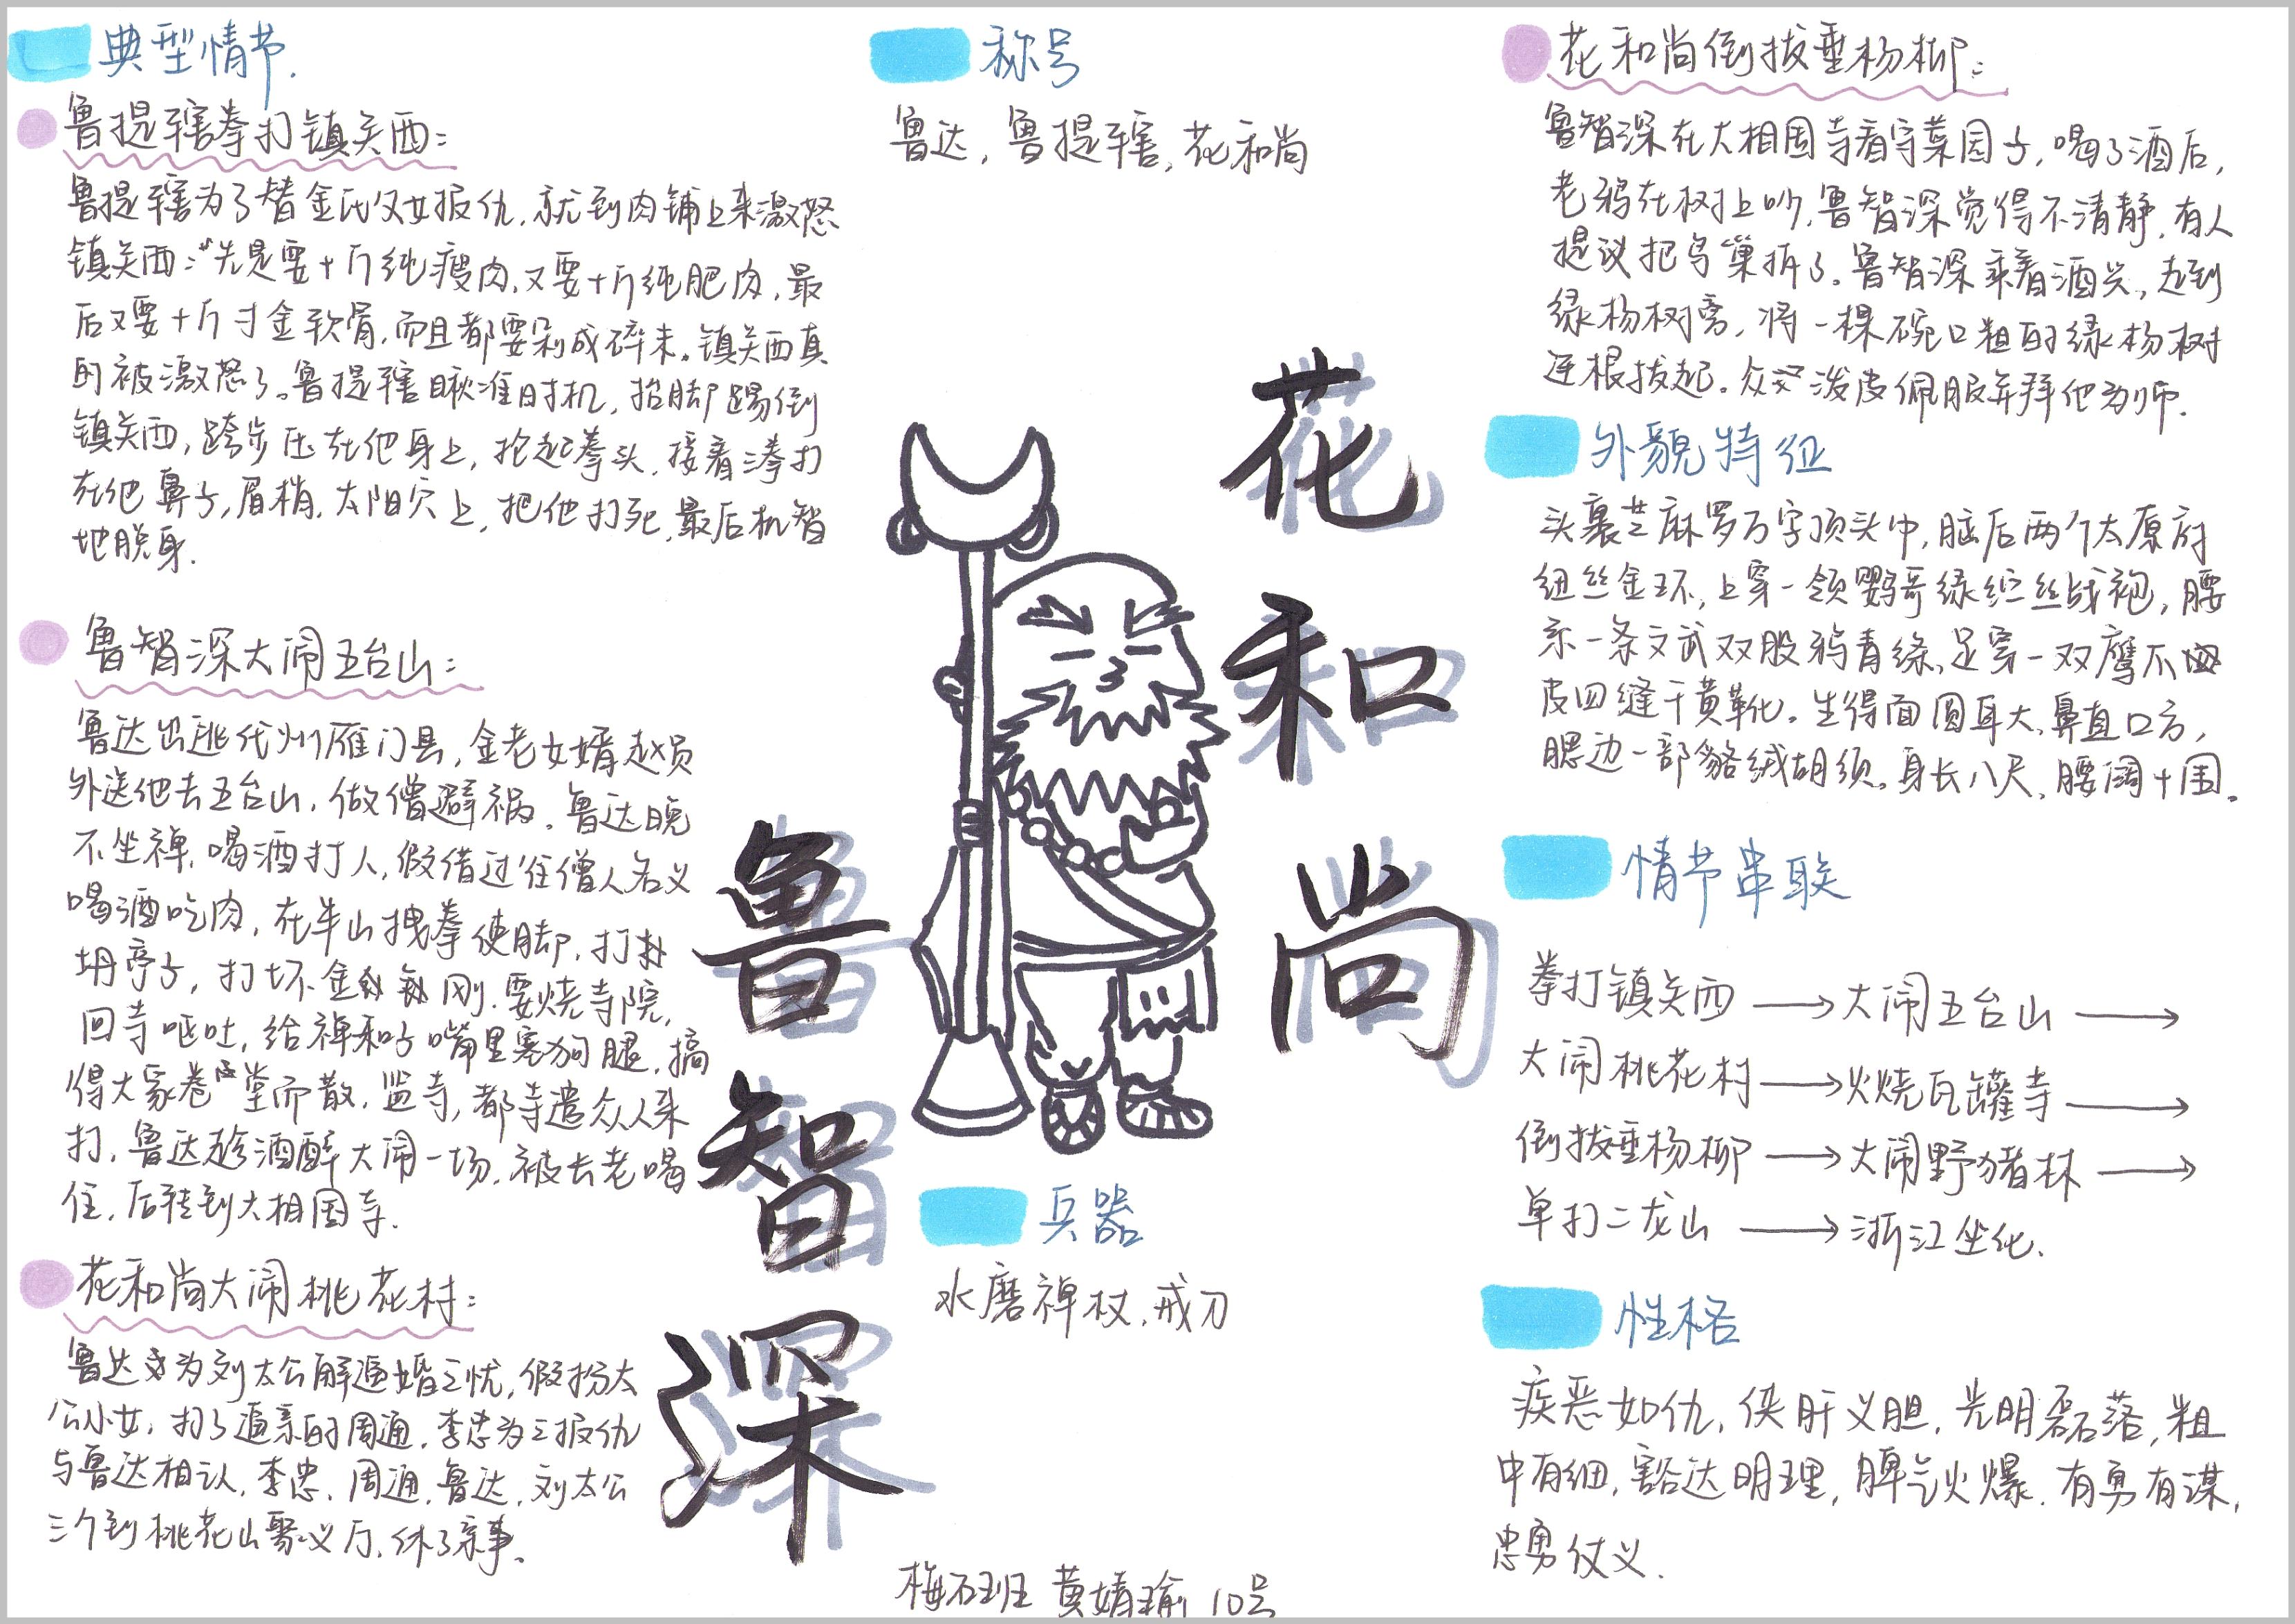 典型情节.
鲁提辖拳打镇关西:
鲁提辖为了替金氏父女报仇,就到肉铺上来激怒
镇关西:“先是要十斤纯瘦肉,又要十斤纯肥肉,最
后又要十斤寸金软骨,而且都要剁成碎末。镇关西真
的被激怒了。鲁提辖瞅准时机,抬脚踢倒
镇关西,跨步压在他身上,抡起拳头,接着三拳打
在他鼻子,眉梢,太阳穴上,把他打死,最后机智
地脱身.
鲁智深大闹五台山:
鲁达出逃代州雁门县,金老女婿赵员
外送他去五台山,做僧避祸。鲁达晚
不坐禅,喝酒打人,假借过往僧人名义
喝酒吃肉,在半山拽拳使脚,打扑
坍亭子,打坏金刚.要烧寺院,
回寺呕吐,给禅和子嘴里塞狗腿,搞
得大家卷堂而散,监寺,都寺遣众人来
打,鲁达趁酒醉大闹一场,被长老喝
住,后转到大相国寺.
花和尚大闹桃花村:
鲁达为刘太公解逼婚之忧,假扮太
公小女,打了逼亲的周通,李忠为之报仇
与鲁达相认,李忠,周通,鲁达,刘太公
三个到桃花山聚义厅,休了亲事。
称号
鲁达,鲁提辖,花和尚
花和尚
鲁智深
兵器
水磨禅杖,戒刀
梅石班 黄婧瑜 10号
花和尚倒拔垂杨柳:
鲁智深在大相国寺看守菜园子,喝了酒后,
老鸦在树上吵,鲁智深觉得不清静,有人
提议把鸟巢拆了。鲁智深乘着酒兴,走到
绿杨树旁,将一棵碗口粗的绿杨树
连根拔起。众泼皮佩服并拜他为师.
外貌特征
头裹芝麻罗万字顶头巾,脑后两个太原府
纽丝金环,上穿一领鹦哥绿纻丝战袍,腰
系一条文武双股鸦青绦,足穿一双鹰爪
皮四缝干黄靴。生得面圆耳大,鼻直口方,
腮边一部貉𦈌胡须。身长八尺,腰阔十围。
情节串联
拳打镇关西 → 大闹五台山 →
大闹桃花村 → 火烧瓦罐寺 →
倒拔垂杨柳 → 大闹野猪林 →
单打二龙山 → 浙江坐化.
性格
疾恶如仇,侠肝义胆,光明磊落,粗
中有细,豁达明理,脾气火爆,有勇有谋,
忠勇仗义.